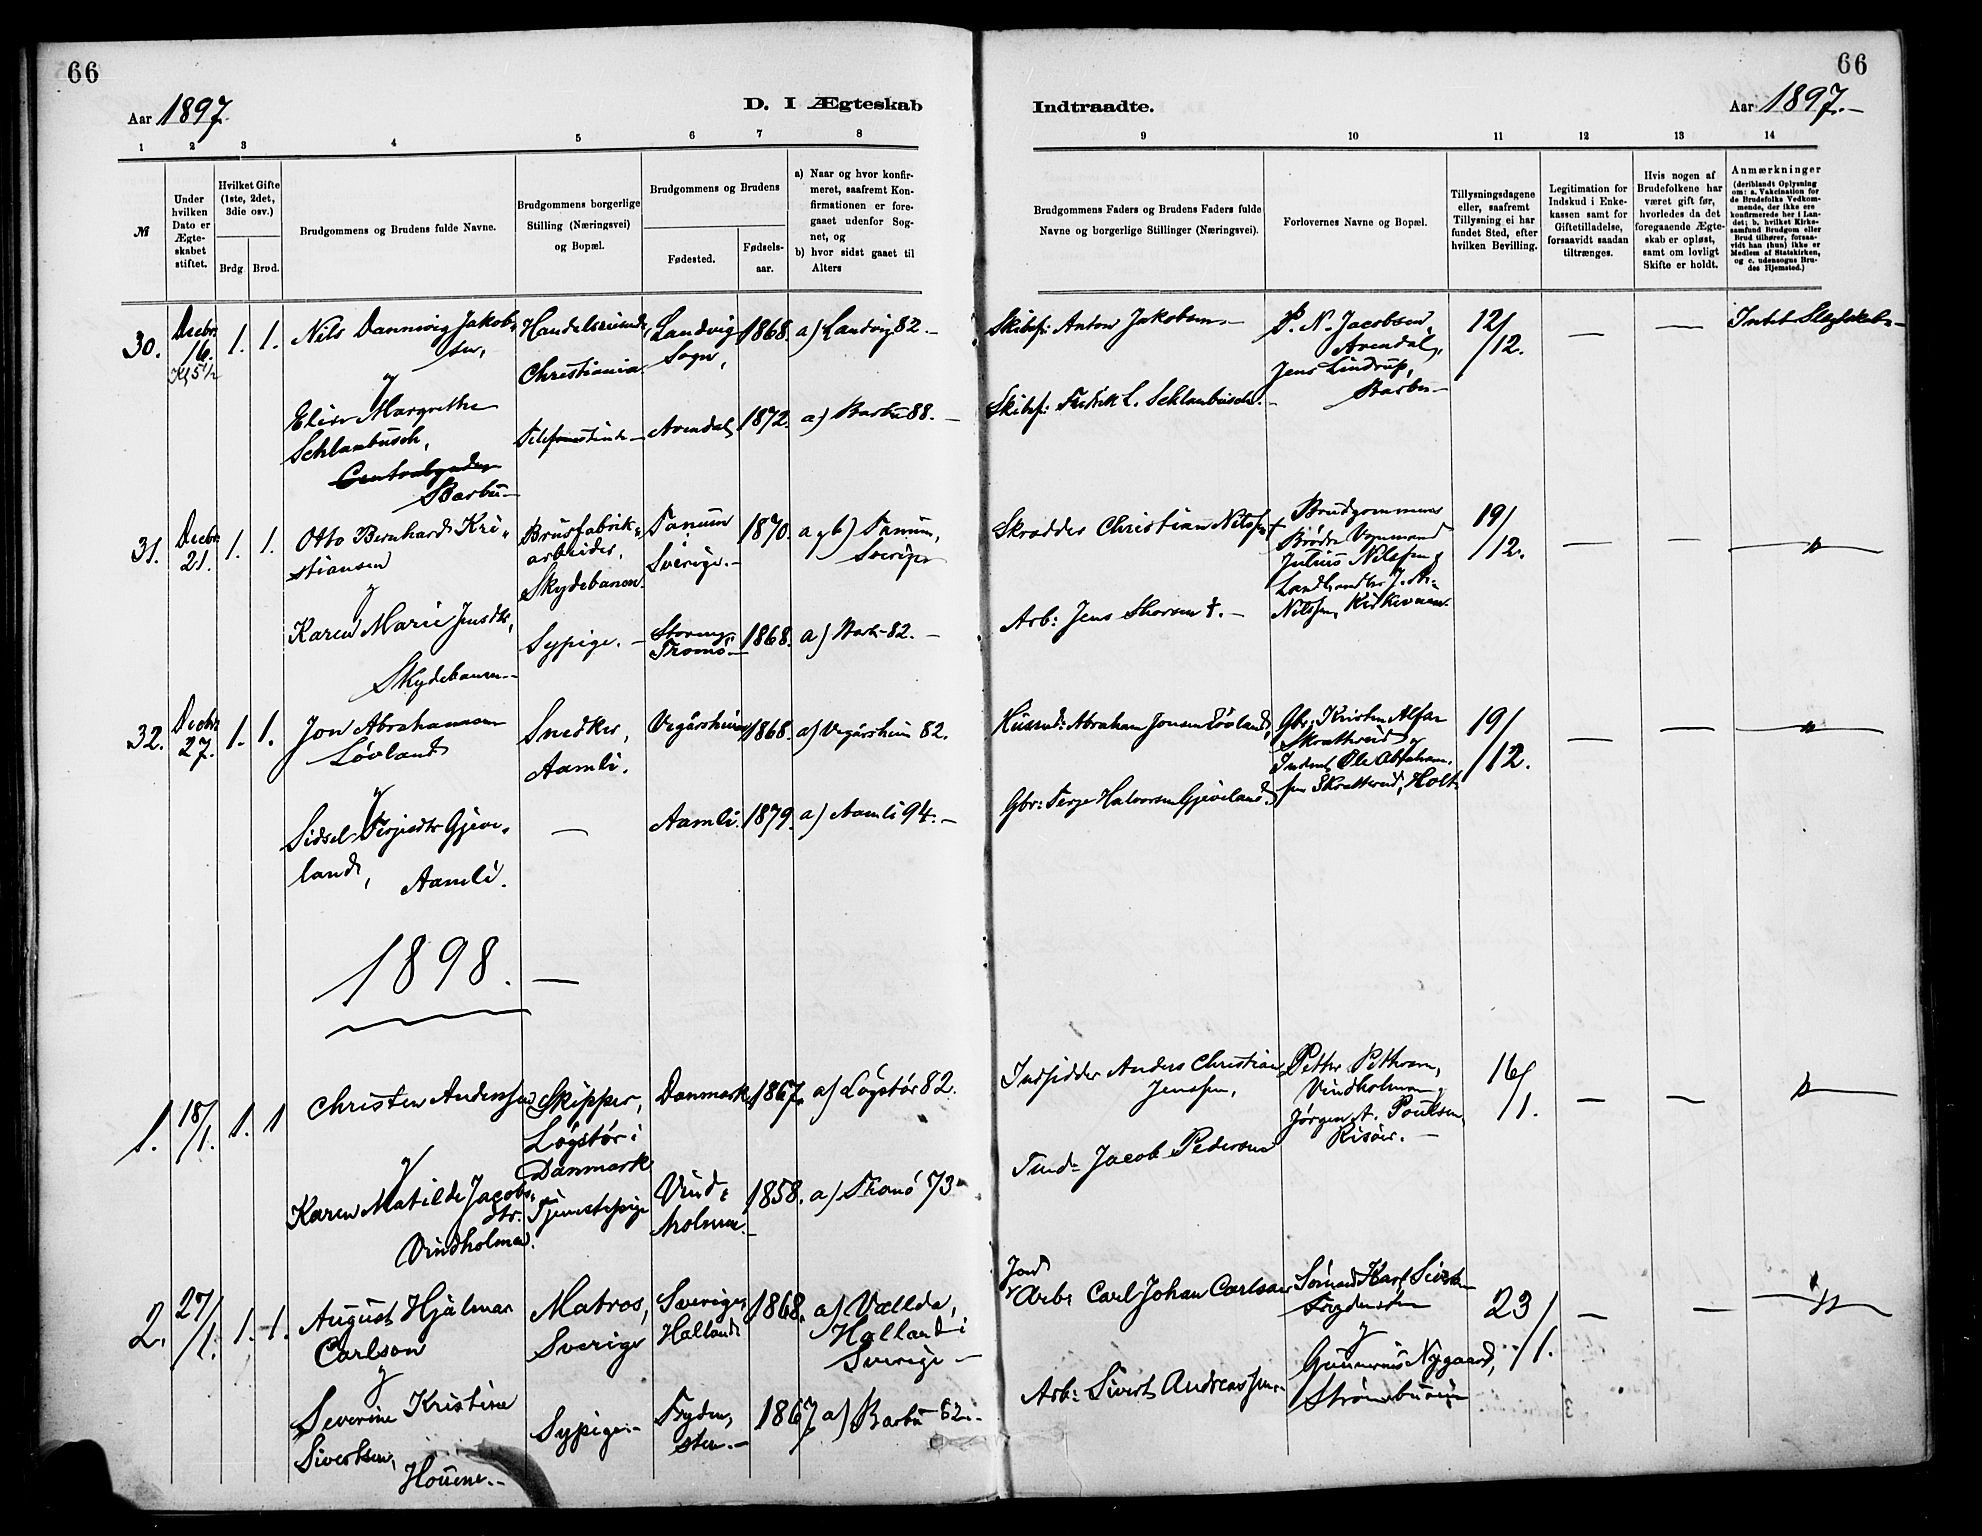 66
66
Aar 1897.
D. I Ægteskab
Indtraadte.
Aar 1897.-
1 2 3 4 5 6 7 8 9 10 11 12 13 14
№
Under
hvilken
Dato er
Ægte-
skabet
stiftet.
Hvilket Gifte
(1ste, 2det,
3die osv.)
Brdg.
Brud.
Brudgommens og Brudens fulde Navne.
Brudgommens borgerlige
Stilling (Næringsvei)
og Bopæl.
Brudgommens og Brudens
Fødested.
Fødsels-
aar.
a) Naar og hvor konfir-
meret, saafremt Kon-
firmationen er fore-
gaaet udenfor Sog-
net, og
b) hvor sidst gaaet til
Alters
Brudgommens Faders og Brudens Faders fulde
Navne og borgerlige Stillinger (Næringsvei).
Forlovernes Navne og Bopæl.
Tillysningsdagene
eller, saafremt
Tillysning ei har
fundet Sted, efter
hvilken Bevilling.
Legitimation for
Indskud i Enke-
kassen samt for
Giftetilladelse,
forsaavidt saadan
tiltrænges.
Hvis nogen af
Brudefolkene har
været gift før,
hvorledes da det
foregaaende Ægte-
skab er opløst,
samt om lovligt
Skifte er holdt.
Anmærkninger
(deriblandt Oplysning
om: a. Vakcination for
de Brudefolks Vedkom-
mende, der ikke ere
konfirmerede her i Lan-
det; b. hvilket Kirke-
samfund Brudgom eller
Brud tilhører, forsaa-
vidt han (hun) ikke er
Medlem af Statskirken,
og c. udensogns Bru-
des Hjemsted.)
30.
Decbr.
16.
Kl 5½
1. 1.
Nils Dannevig Jakob-
sen,
&
Elise Margrethe
Schlanbusch,
Barbu-
Christiania
Landvig
Sogn,
1868.
a) Landvig 82.-
Arendal,
1872.
a) Barbu 88.-
Skibsf: Anton Jakobsen.-
Skibsf: Fredrik L. Schlanbusch.-
P. N. Jacobsen,
Arendal,
Jens Lindrup,
Barbu-
12/
/12.
—
—
Intet Slægtskab.-
31.
Decbr.
21.
1. 1.
Otto Bernhard Kri-
stiansen
&
Karen Marie Jensdtr,
Skydebanen.-
Brusfabrik-
arbeider,
Skydebanen.
Sypige.-
Tanum
Sverige.-
Tromö.-
1870.
a & b) Tanum,
Sverige
1868.
a) Barbu 82.-
Skrædder Christian Nilssen †
Arb: Jens Thorsen †.-
Brudgommens
Brödre Vognmand
Julius Nilssen &
Landhandler J. A.
Nilssen, Kirkeveien.
19/
/12.
—
—
"
32.
Decbr.
27.
1. 1.
Jon Abrahamsen
Løvland
&
Sidsel Terjesdtr Gjeve-
land,
Aamli.
Snedker,
Aamli.
—
Vegårsheien
1868.
a) Vegårsheien 82.
Aamli.
1879.
a) Aamli 94.-
Husmd: Abraham Jonsen Løvland,
Gbr: Terje Halvorsen Gjeveland.
Gbr: Kristen Alfsen
Skratterud &
Ole Abraham-
sen Skratterud, Holt.
19/
/12.
—
—
"
1898.-
1.
18/
/1.
1. 1
Christen Andersen
&
Karen Matilde Jacobs-
dtr.
Vindholmen.
Skipper,
Løgstør i
Danmark
Tjenestepige
Danmark
1867.
a) Løgstør 82.
Vind-
holmen.-
1858.
a) Tromö 73-
Indsidder Anders Christian
Jenssen,
Jacob Pedersen
Petter Pettersen,
Vindholmen &
Jørgen A. Poulsen,
Risöer.-
16/
/1.
—
—
"
2.
27/
/1.
1. 1.
August Hjalmar
Carlson
&
Severine Kristine
Sivertsen,
Houene.-
Matros,
Sverige
Sypige.-
Sverige,
Halland
1868.
a) Vallda,
Halland i
Sverige-
Fryden-
sten.-
1867
a) Barbu 82.-
Jord
Arb: Carl Johan Carlsson
Arb: Sivert Andreassen.-
Sömand Karl Sivertsen
Frydensten
&
Gunnerius Nygaard,
Strömsbuveien
23/
/1.
—
—
"